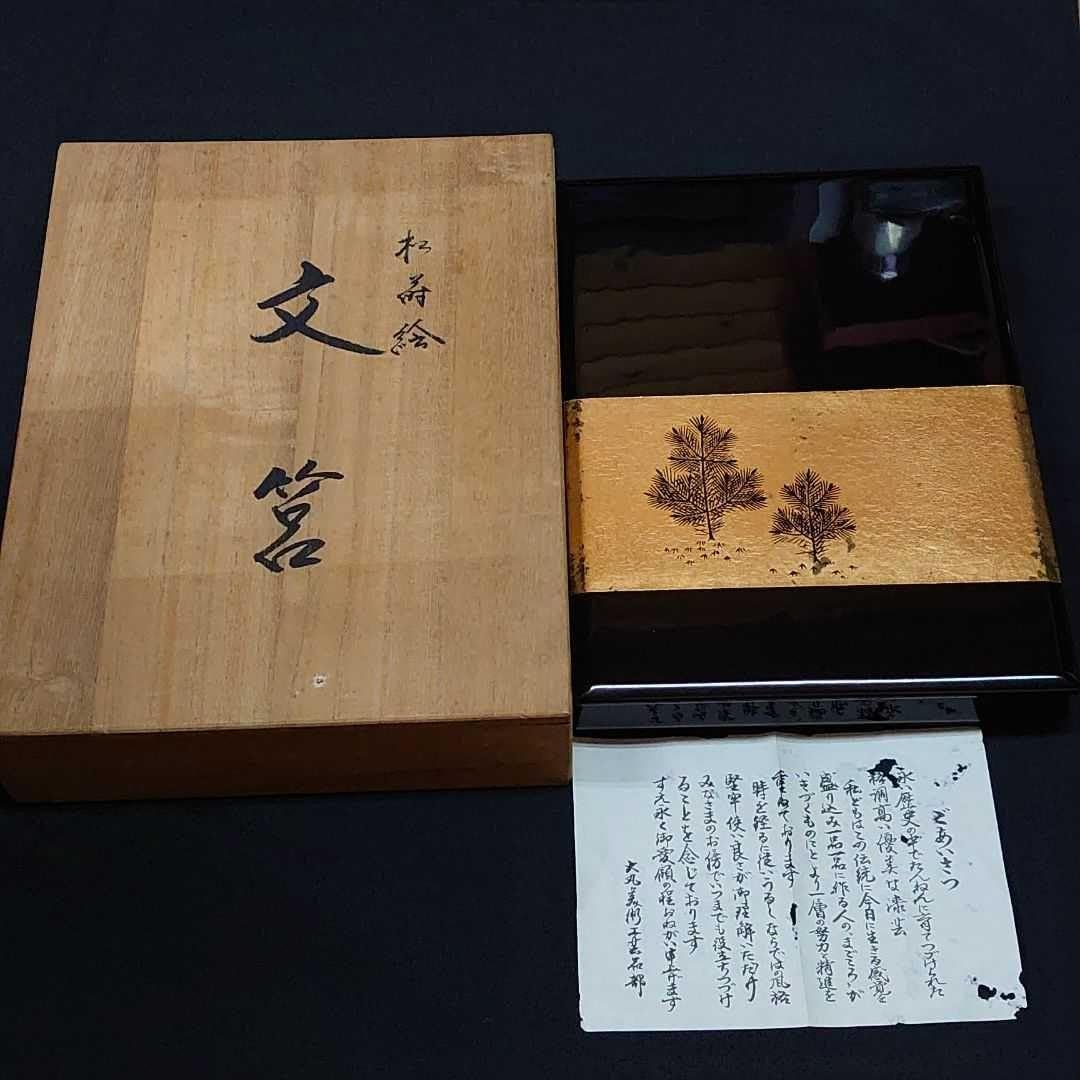 松蒔絵
文筥
ごあいさつ
永い歴史の中でたんねんに育てつづけられた
格調高い優美な漆芸
私どもはこの伝統に今日に生きる感覚を
盛り込み一品一品に作る人の、まごころ、が
いきづくものにとより一層の努力と精進を
重ねております
時を経るに従いうるしならではの風格
堅牢、使い良さが御理解いただけ
みなさまのお傍でいつまでも役立ちつづけ
ることを念じております
すえ永く御愛顧の程おねがい申上げます
大丸美術工芸品部